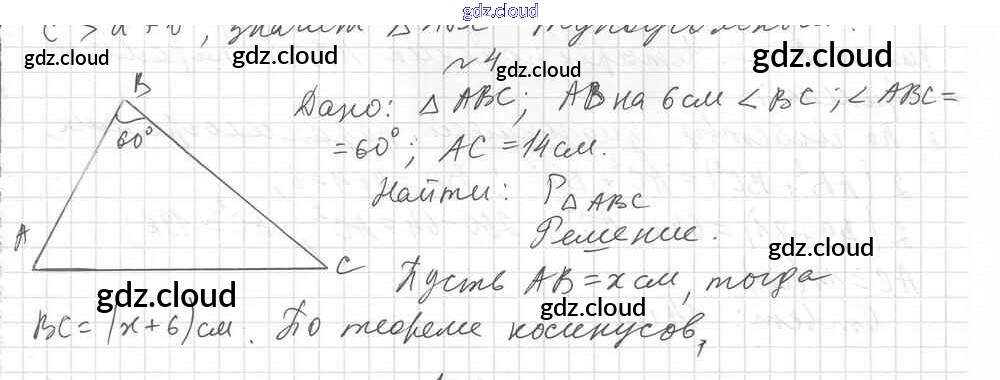 gdz.cloud
gdz.cloud gdz.cloud gdz.cloud
№4
gdz.cloud
B
60°
Дано: △ABC; AB на 6 см < BC; ∠ABC=
=60°; AC=14 см.
Найти: P△ABC
Решение.
gdz.cloud
A
C
Пусть AB=x см, тогда
gdz.cloud gdz.cloud gdz.cloud
BC=(x+6) см. По теореме косинусов,